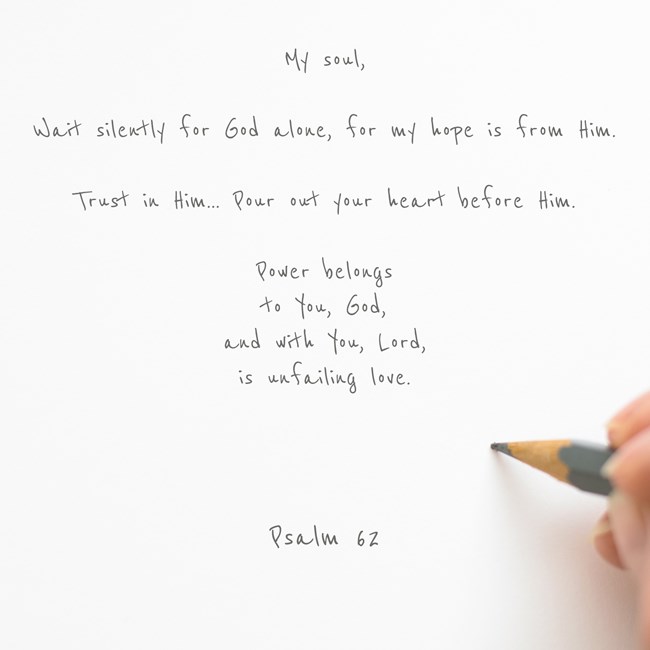 My soul,
Wait silently for God alone, for my hope is from Him.
Trust in Him... Pour out your heart before Him.
Power belongs
to You, God,
and with You, Lord,
is unfailing love.
Psalm 62